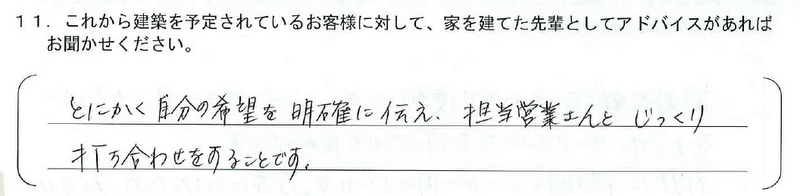 11．これから建築を予定されているお客様に対して、家を建てた先輩としてアドバイスがあれば
お聞かせください。
とにかく自分の希望を明確に伝え、担当営業さんと じっくり
打ち合わせをすることです。